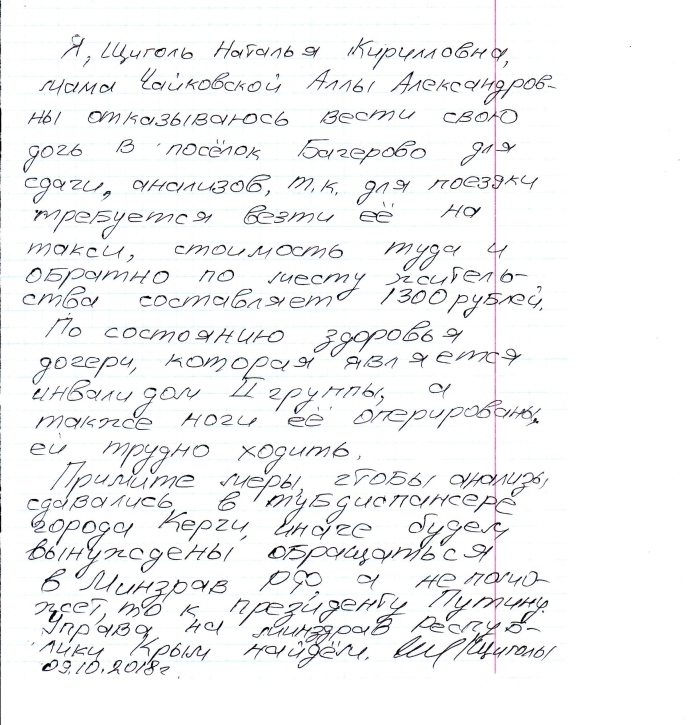 Я, Щиголь Наталья Кирилловна,
мама Чайковской Аллы Александров-
ны отказываюсь вести свою
дочь в посёлок Багерово для
сдачи, анализов, т.к. для поездки
требуется везти её на
такси, стоимость туда и
обратно по месту житель-
ства составляет 1300 рублей.
По состоянию здоровья
дочери, которая является
инвалидом II группы, а
также ноги её оперированы,
ей трудно ходить.
Примите меры, чтобы анализы
сдавались в тубдиспансере
города Керчи, иначе будем
вынуждены обращаться
в Минздрав РФ, а не помо-
жет, то к президенту Путину.
Управа на минздрав Респуб-
лики Крым найдём. /Щиголь/
09.10.2018г.